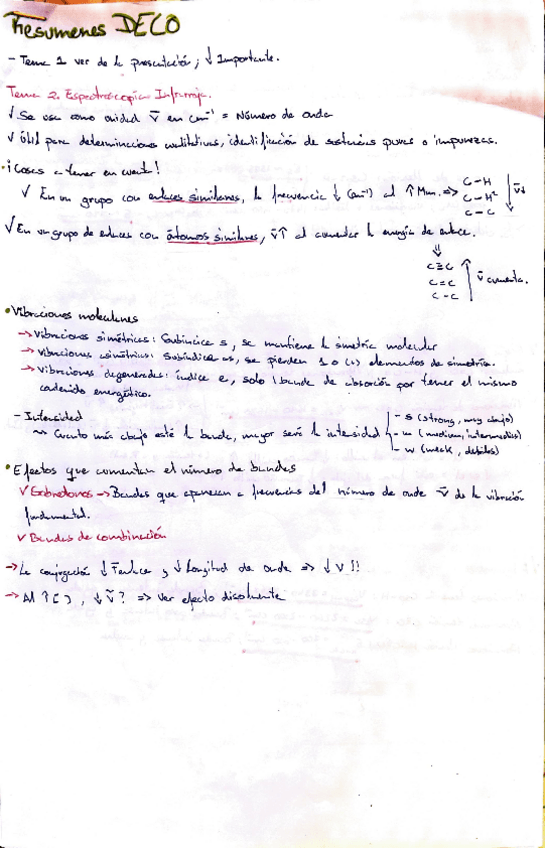 Resumenes DECO
- Tema 1 ver de la presentación, ↓ Importante.
Tema 2. Espectroscopía Infrarroja.
✓ Se usa como unidad ν̄ en cm⁻¹ = Número de onda
✓ Útil para determinaciones cualitativas, identificación de sustancias puras o impurezas.
• ¡Cosas a tener en cuenta!
✓ En un grupo con enlaces similares, la frecuencia ↓ (cm⁻¹) al ↑ =>
C-H
C-H²
C-C
↓ ν̄↓
✓ En un grupo de enlaces con átomos similares, ν̄↑ al aumentar la energía de enlace.
⇓
C≡C
C=C
C-C
↑ ν̄ aumenta.
• Vibraciones moleculares
→ Vibraciones simétricas: Subíndice s, se mantiene la simetría molecular
→ Vibraciones asimétricas: Subíndice as, se pierden 1 o (+) elementos de simetría.
→ Vibraciones degeneradas: índice e, solo 1 banda de absorción por tener el mismo
contenido energético.
- Intensidad
~> Cuanto más abajo esté la banda, mayor será la intensidad
- s (strong, muy abajo)
- m (medium, intermedias)
- w (weak, débiles)
• Efectos que aumentan el número de bandas
✓ Sobretonos → Bandas que aparecen a frecuencias del número de onda ν̄ de la vibración
fundamental.
✓ Bandas de combinación
→ La conjugación ↓ enlace y ↓ Longitud de onda => ↓ ν !!
→ Al ↑ [ ], ↓ ν̄ ? => Ver efecto disolvente